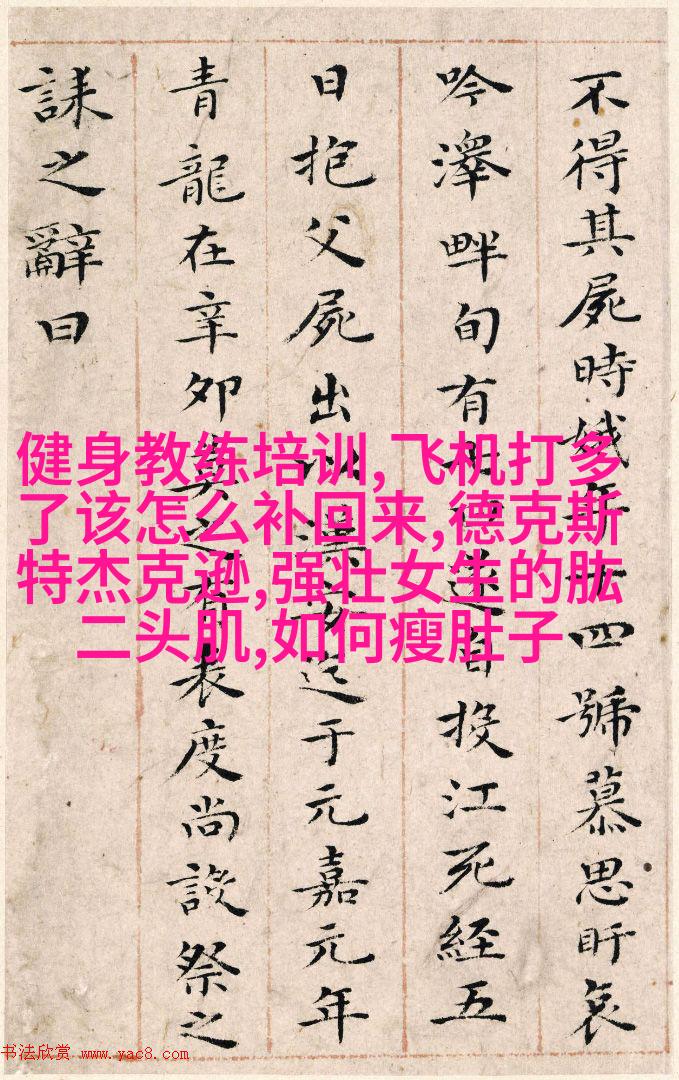 不得其屍時娥年十四號慕思盱哀
吟澤畔旬有七日遂自投江死經五
日抱父屍出以漢安迄于元嘉元年
青龍在辛卯莫之有表度尚設祭之
誄之辭曰
健身教练培训,飞机打多
了该怎么补回来,德克斯
特杰克逊,强壮女生的肱
二头肌,如何瘦肚子
书法欣赏 www.yac8.com